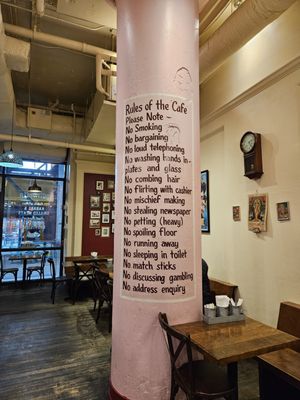 Rules of the Cafe
Please Note -
No Smoking
No bargaining
No loud telephoning
No washing hands in -
plates and glass
No combing hair
No flirting with cashier
No mischief making
No stealing newspaper
No petting (heavy)
No spoiling floor
No running away
No sleeping in toilet
No match sticks
No discussing gambling
No address enquiry